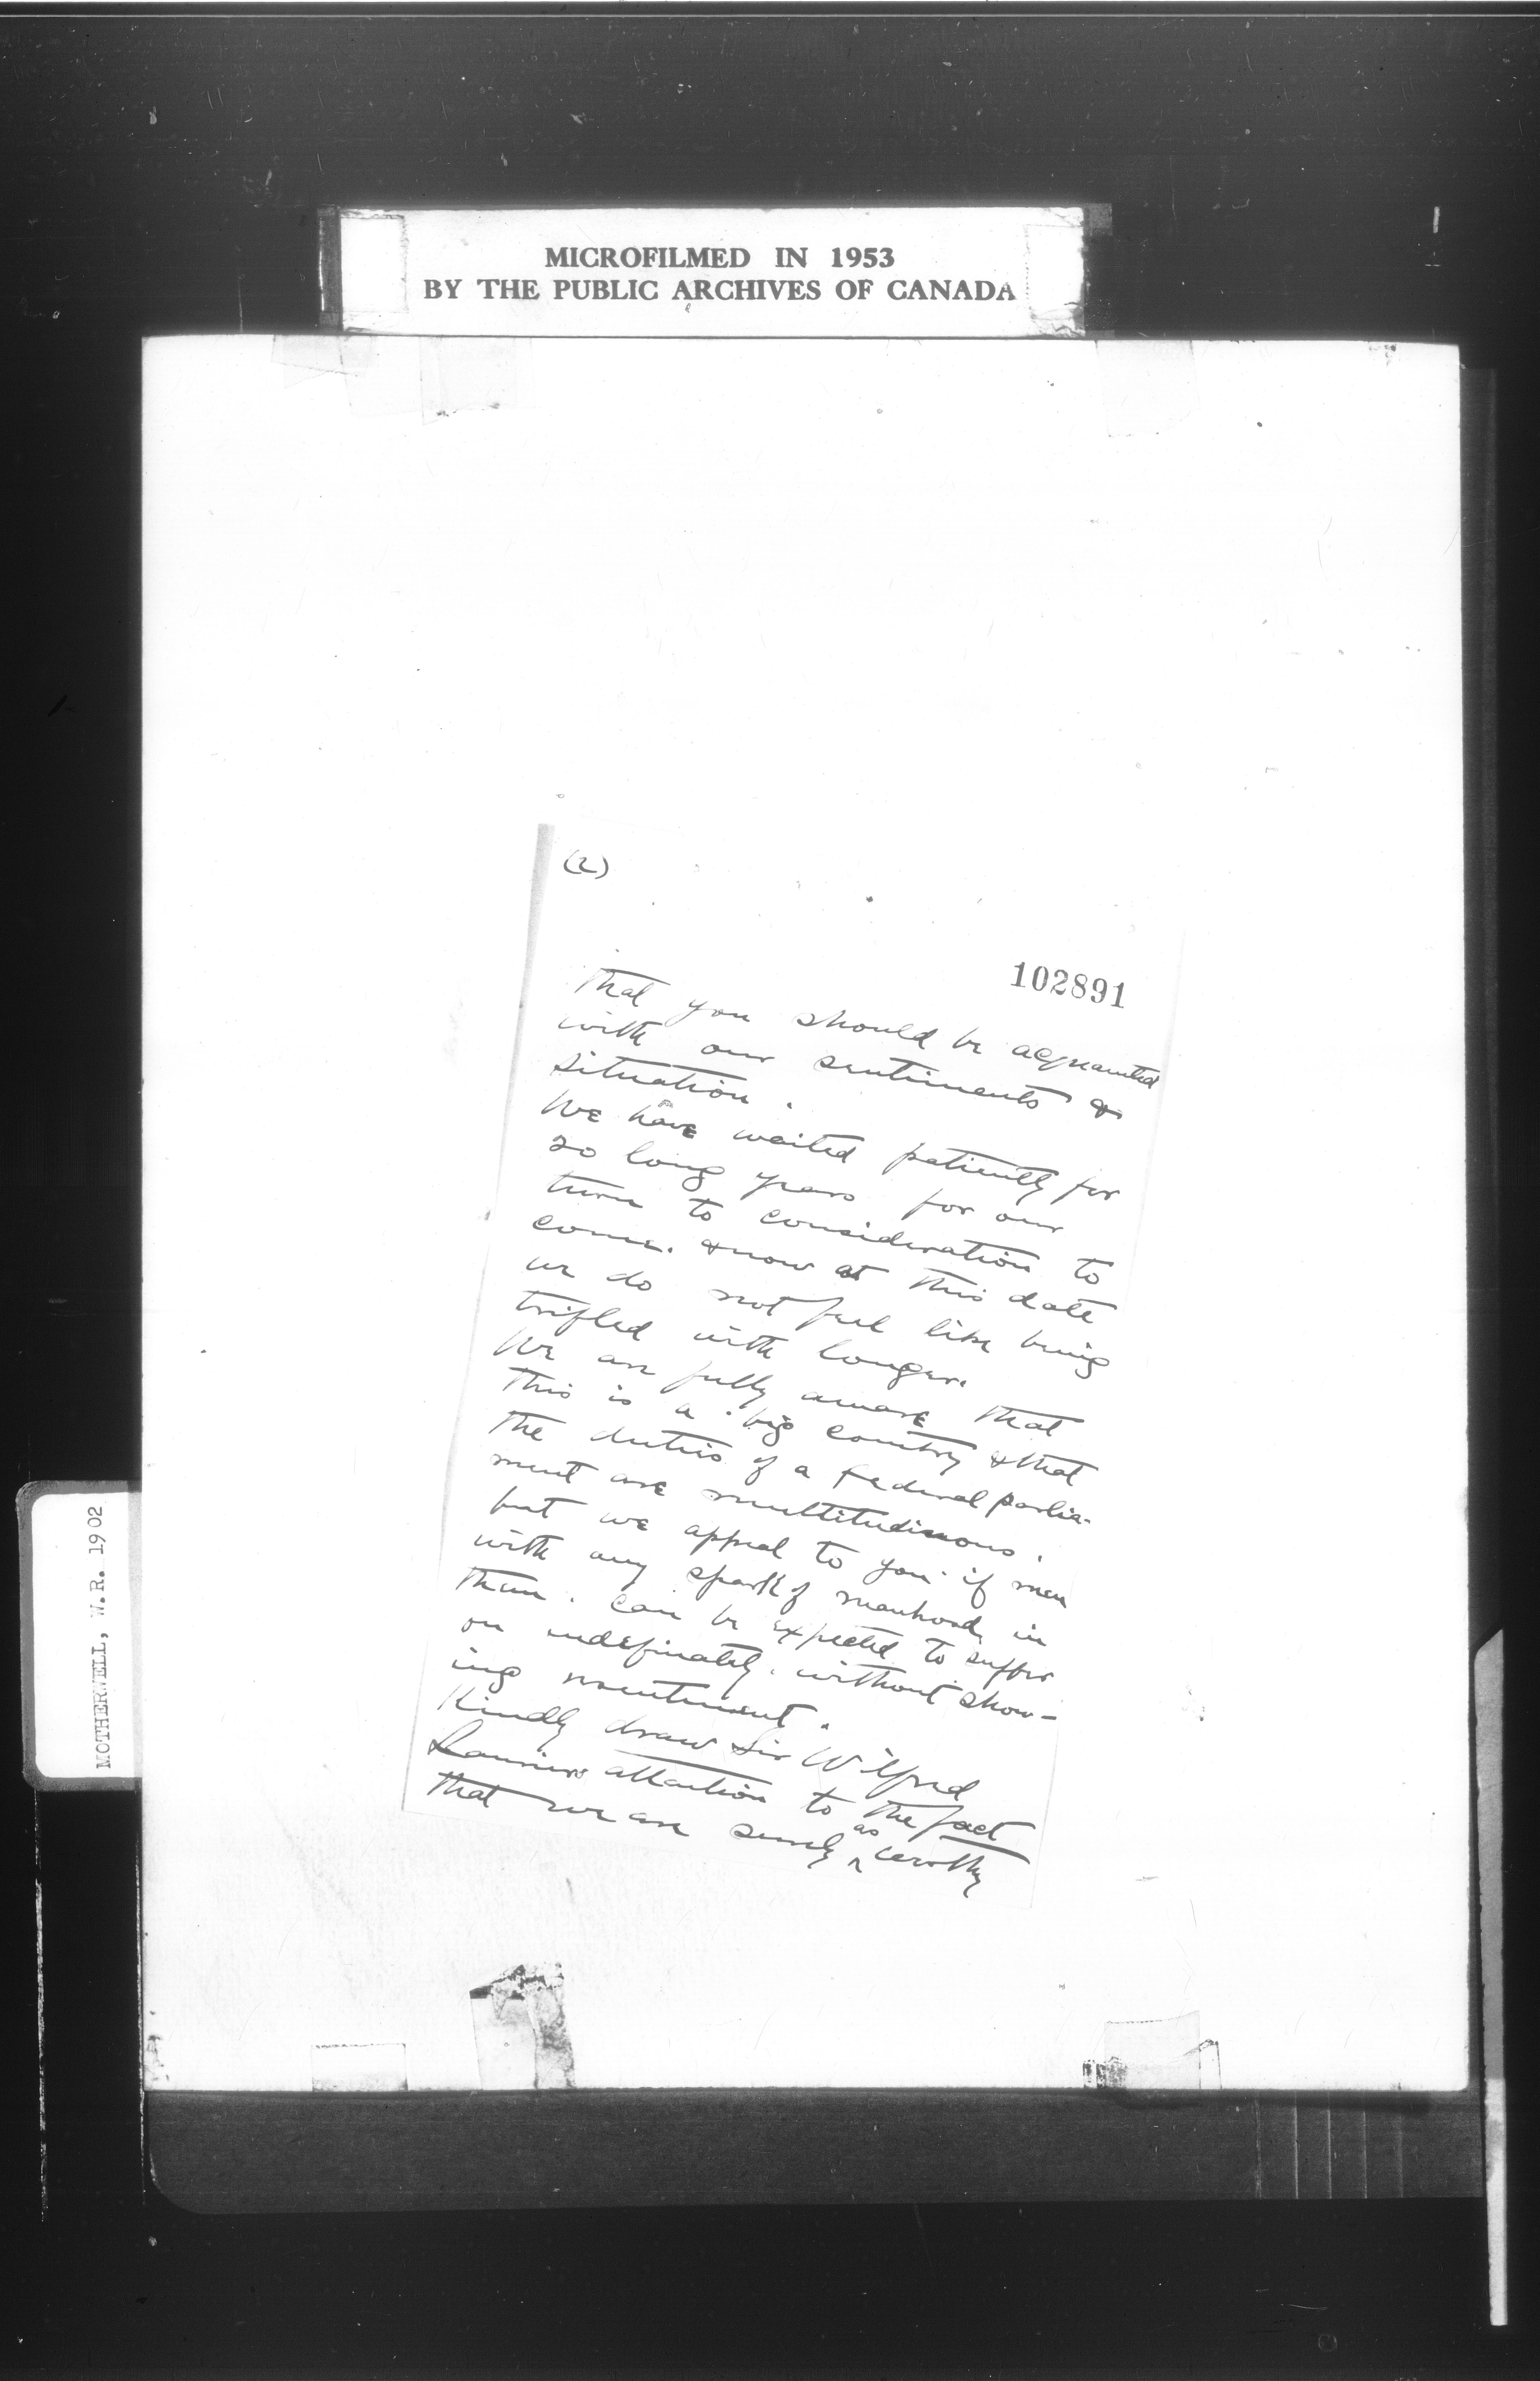 MICROFILMED IN 1953
BY THE PUBLIC ARCHIVES OF CANADA
(2)
102891
that you should be acquainted
with our sentiments &
situation.
We have waited patiently for
20 long years for our
turn to consideration to
come. & now at this date
we do not feel like being
trifled with longer.
We are fully aware that
this is a big country & that
the duties of a Federal parlia-
ment are multitudinous.
but we appeal to you. if men
with any spark of manhood in
them. can be expected to suffer
on indefinately. without show-
ing resentment.
Kindly draw Sir Wilfred
Lauriers attention to the fact
that we are surely as worthy
MOTHERWELL, W.R. 1902